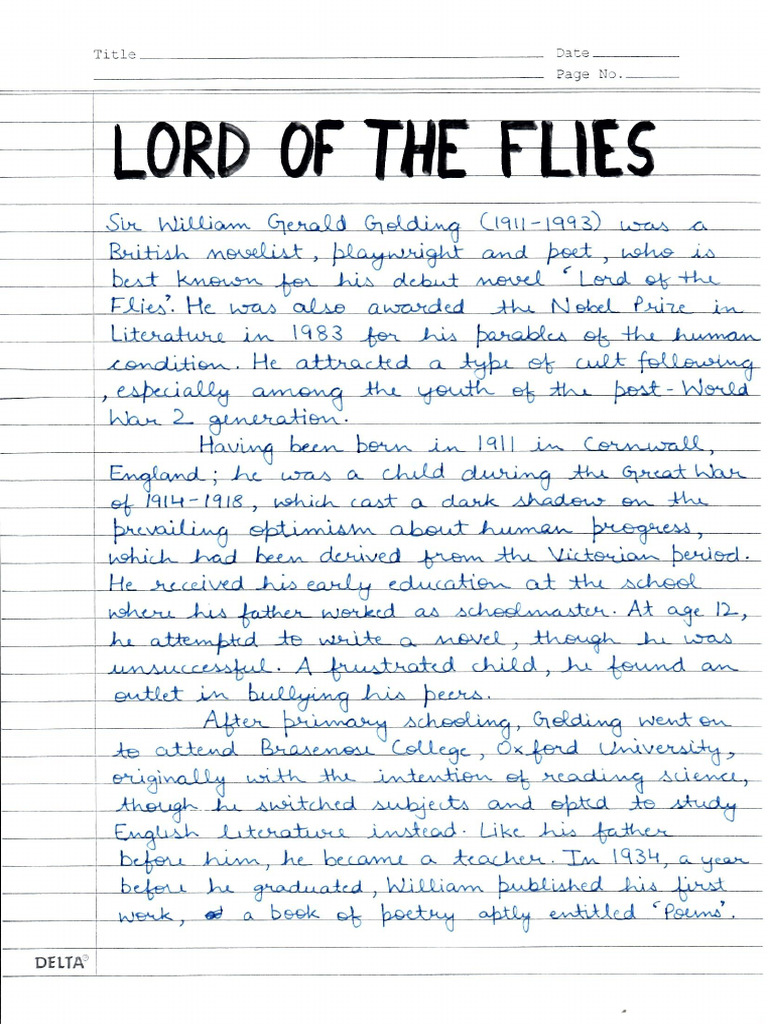 Title Date
Page No.
LORD OF THE FLIES
Sir William Gerald Golding (1911-1993) was a
British novelist, playwright and poet, who is
best known for his debut novel 'Lord of the
Flies'. He was also awarded the Nobel Prize in
Literature in 1983 for his parables of the human
condition. He attracted a type of cult following
, especially among the youth of the post-World
War 2 generation.
Having been born in 1911 in Cornwall,
England; he was a child during the Great War
of 1914-1918, which cast a dark shadow on the
prevailing optimism about human progress,
which had been derived from the Victorian period.
He received his early education at the school
where his father worked as schoolmaster. At age 12,
he attempted to write a novel, though he was
unsuccessful. A frustrated child, he found an
outlet in bullying his peers.
After primary schooling, Golding went on
to attend Brasenose College, Oxford University,
originally with the intention of reading science,
though he switched subjects and opted to study
English literature instead. Like his father
before him, he became a teacher. In 1934, a year
before he graduated, William published his first
work, a book of poetry aptly entitled 'Poems'.
DELTA